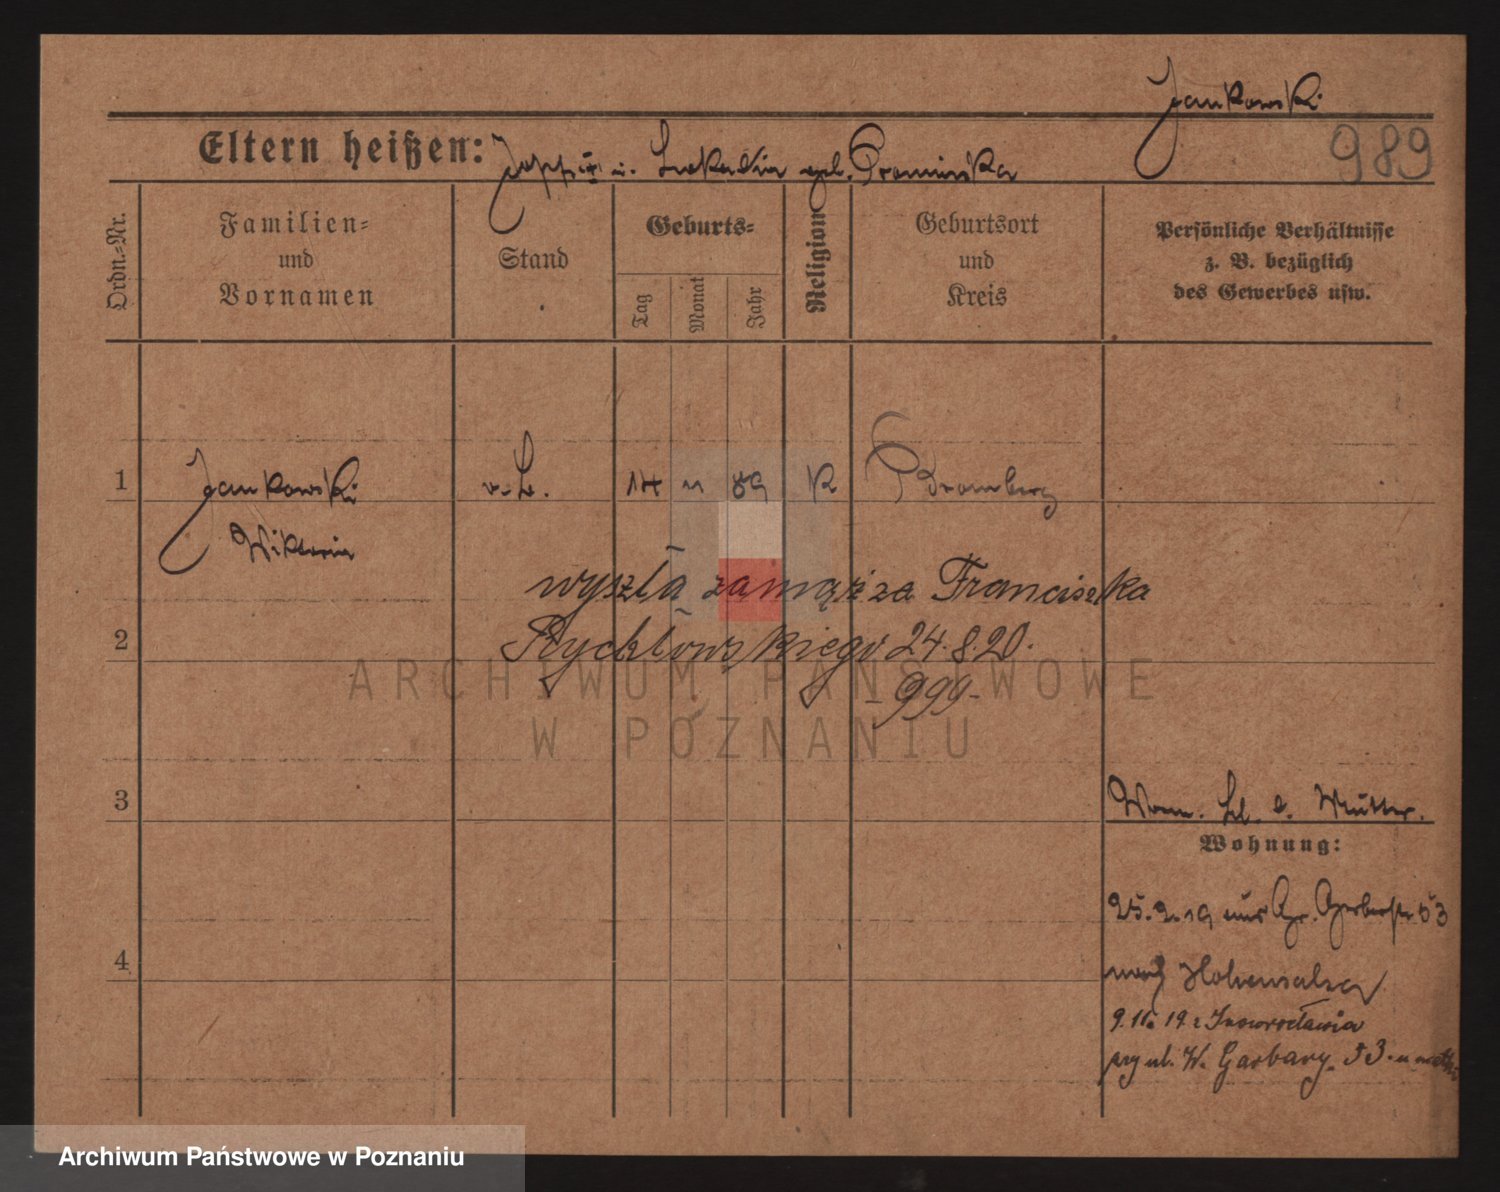 Jankowski
989
Eltern heißen: Josef u. Leokadia geb.
Ordn.-Nr.
Familien-
und
Vornamen
Stand
Geburts-
Tag
Monat
Jahr
Religion
Geburtsort
und
Kreis
Persönliche Verhältnisse
z. B. bezüglich
des Gewerbes usw.
1 Jankowski v. L. 14 11 89 K Bromberg
Wiktoria
wyszła zamąż za Franciszka
2 Rychłowskiego 24.8.20.
- 999 -
ARCHIWUM PAŃSTWOWE
W POZNANIU
3
Mutter.
Wohnung:
25.2.19 aus Gr. Gerberstr. 53
4
nach Hohensalza
9.11. 19 z Inowrocławia
przy ul. W. Garbary. 53. u matki
Archiwum Państwowe w Poznaniu